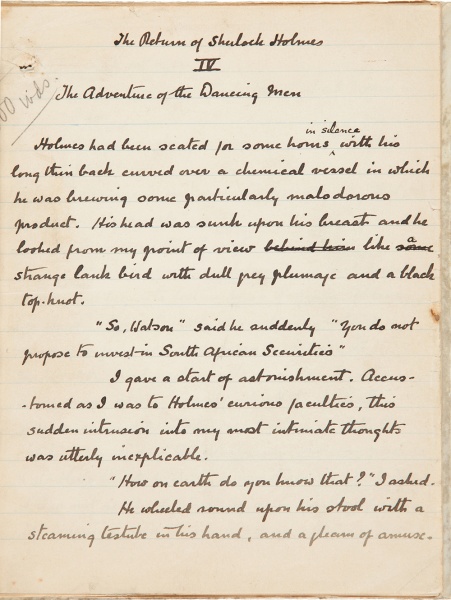 The Return of Sherlock Holmes
IV
The Adventure of the Dancing Men
00 wds.
in silence
Holmes had been seated for some hours, with his
long thin back curved over a chemical vessel in which
he was brewing some particularly malodorous
product. His head was sunk upon his breast and he
looked from my point of view behind him like some a
strange lank bird with dull grey plumage and a black
top-knot.
"So, Watson" said he suddenly "You do not
propose to invest in South African Securities"
I gave a start of astonishment. Accus-
-tomed as I was to Holmes' curious faculties, this
sudden intrusion into my most intimate thoughts
was utterly inexplicable.
"How on earth do you know that?" I asked.
He wheeled round upon his stool with a
steaming testube in his hand, and a gleam of amuse-